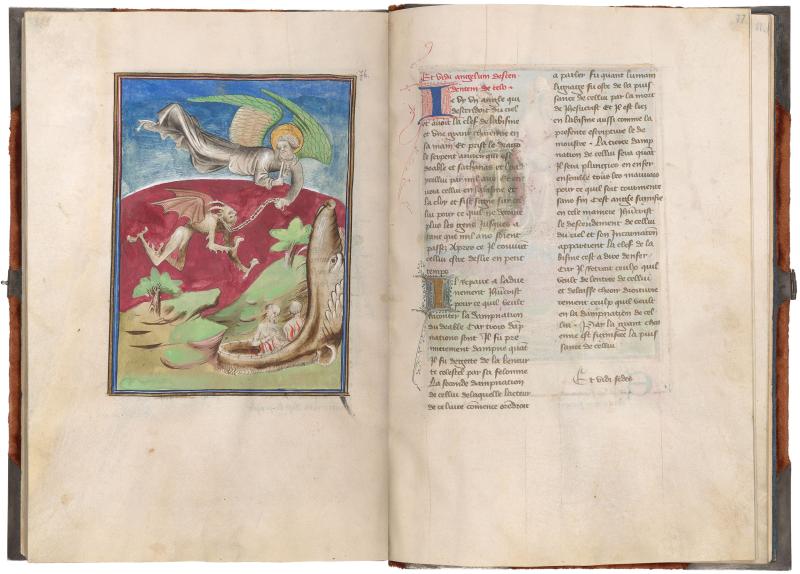 76
77
Et vidi angelum descen
dentem de celo
Je vy vn angle qui
descendoit du ciel
et auoit la clef de labisme
et vne grant chaienne en
sa main Et prist le dragon
le serpent ancien qui est
deable et sathanas et loia
icellui par mil ans Et en
uoia cellui en labisme et
la cloy et fist signe sur cel
lui pour ce quil ne decoiue
plus les gens Jusques a
tant que mil ans soient
passez Apres ce Il conuient
cellui estre deslie en petit
temps
Il repaire a ladue
nement Jhucrist
pour ce quil veult
raconter la dampnation
du deable Car trois damp
nations sont Il fu pre
mierement dampne quant
Il fu degette de la heneur
celestel par sa felonnie
La seconde dampnation
de cellui de laquelle lacteur
de ce liure comence orendroit
a parler fu quant lumain
lignaige fu oste de la puis
sance de cellui par la mort
de Jhesucrist Et il est liez
en labisme aussi comme la
presente escripture le de
moustre La tierce damp
nation de cellui sera quant
Il sera plungiez en enfer
ensemble tous les mauuais
pour ce quil soit tourmente
sans fin Cest angle signifie
en tele maniere Jhucrist
le descendement de cellui
du ciel et son Incarnation
appartient la clef de la
bisme cest a dire denfer
Car Il
veult de lentree de cellui
et delaisse cheoir droiture
rement ceulp quil veult
en la dampnation de cel
lui Par la grant chai
enne est signifiee la puis
sance de cellui
Et vidi sedes